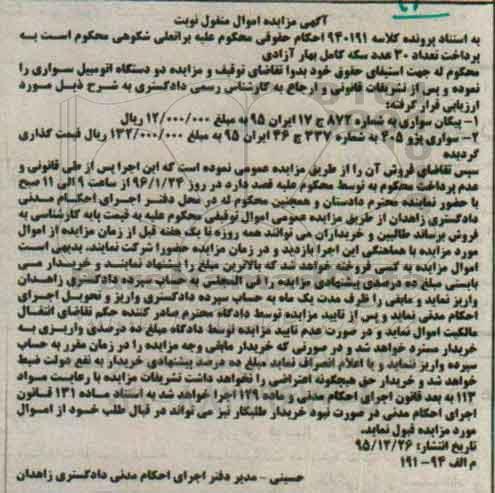 آگهی مزایده اموال منقول نوبت
به استناد پرونده کلاسه ۹۴۰۱۹۱ احکام حقوقی محکوم علیه براتعلی شکوهی محکوم است به
پرداخت تعداد ۳۰ عدد سکه کامل بهار آزادی
محکوم له جهت استیفای حقوق خود بدوا تقاضای توقیف و مزایده دو دستگاه اتومبیل سواری را
نموده و پس از تشریفات قانونی و ارجاع به کارشناس رسمی دادگستری به شرح ذیل مورد
ارزیابی قرار گرفته:
۱- پیکان سواری به شماره ۸۷۲ ج ۱۷ ایران ۹۵ به مبلغ ۱۲/۰۰۰/۰۰۰ ریال
۲- سواری پژو ۴۰۵ به شماره ۳۳۷ ج ۴۶ ایران ۹۵ به مبلغ ۱۳۲/۰۰۰/۰۰۰ ریال قیمت گذاری
گردیده
سپس تقاضای فروش آن را از طریق مزایده عمومی نموده است که این اجرا پس از طی قانونی و
عدم پرداخت محکوم به توسط محکوم علیه قصد دارد در روز ۹۶/۱/۲۴ از ساعت ۹ الی ۱۱ صبح
با حضور نماینده محترم دادستان و همچنین محکوم له در محل دفتر اجرای احکام مدنی
دادگستری زاهدان از طریق مزایده عمومی اموال توقیفی محکوم علیه به قیمت پایه کارشناسی به
فروش برساند طالبین و خریداران می توانند همه روزه تا یک هفته قبل از زمان مزایده از اموال
مورد مزایده با هماهنگی این اجرا بازدید و در زمان مزایده حضورا شرکت نمایند. بدیهی است
اموال مزایده به کسی فروخته خواهد شد که بالاترین مبلغ را پیشنهاد نمایند و خریدار می
بایستی مبلغ ده درصدی پیشنهادی مزایده را فی المجلس به حساب سپرده دادگستری زاهدان
واریز نماید و مابقی را ظرف مدت یک ماه به حساب سپرده دادگستری واریز و تحویل اجرای
احکام مدنی نماید و پس از تایید مزایده توسط دادگاه محترم صادر کننده حکم تقاضای انتقال
مالکیت اموال نماید و در صورت عدم تایید مزایده توسط دادگاه مبلغ ده درصدی واریزی به
خریدار مسترد خواهد شد و در صورتی که خریدار مابقی وجه مزایده را در زمان مقرر به حساب
سپرده واریز ننماید و یا اعلام انصراف نماید مبلغ ده درصد پیشنهادی خریدار به نفع دولت ضبط
خواهد شد و خریدار حق هیچگونه اعتراضی را نخواهد داشت تشریفات مزایده با رعایت مواد
۱۱۳ به بعد قانون اجرای احکام مدنی و ماده ۱۲۹ اجرا خواهد شد به استناد ماده ۱۳۱ قانون
اجرای احکام مدنی در صورت نبود خریدار طلبکار نیز می تواند در قبال طلب خود از اموال
مورد مزایده قبول نماید.
تاریخ انتشار: ۹۵/۱۲/۲۶
م الف ۹۴-۱۹۱
حسینی - مدیر دفتر اجرای احکام مدنی دادگستری زاهدان